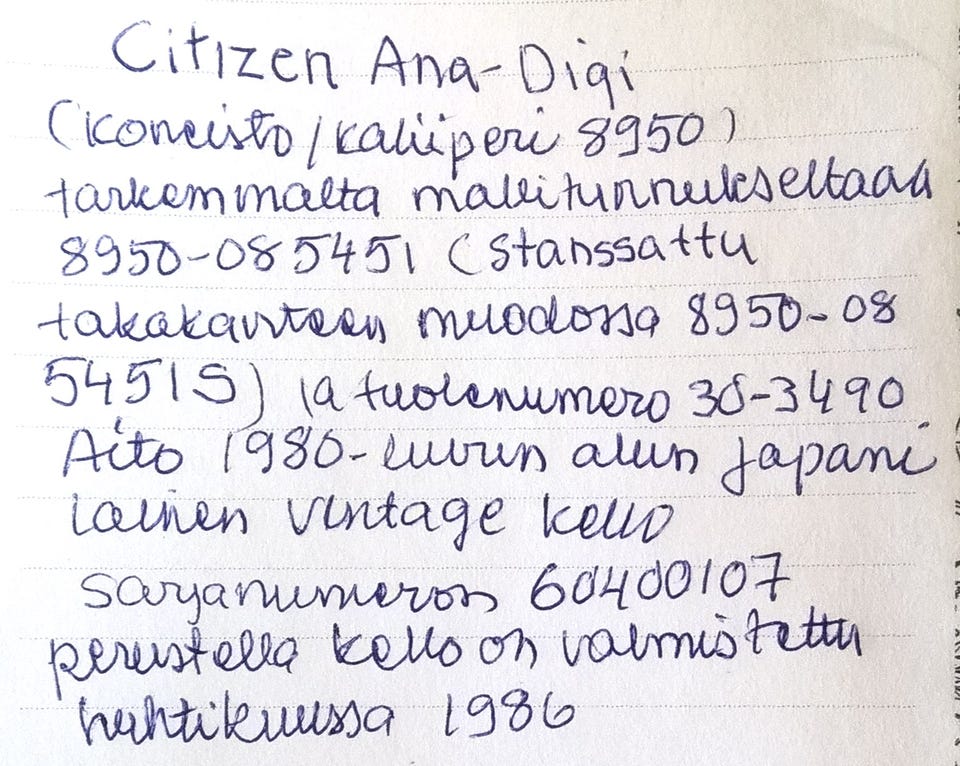 Citizen Ana-Digi
(koneisto/kaliiperi 8950)
tarkemmalta mallitunnukseltaan
8950-085451 (stanssattu
takakanteen muodossa 8950-08
5451S) ja tuotenumero 30-3490
Aito 1980-luvun alun japani
lainen vintage kello
Sarjanumeron 60400107
perusteella kello on valmistettu
huhtikuussa 1986